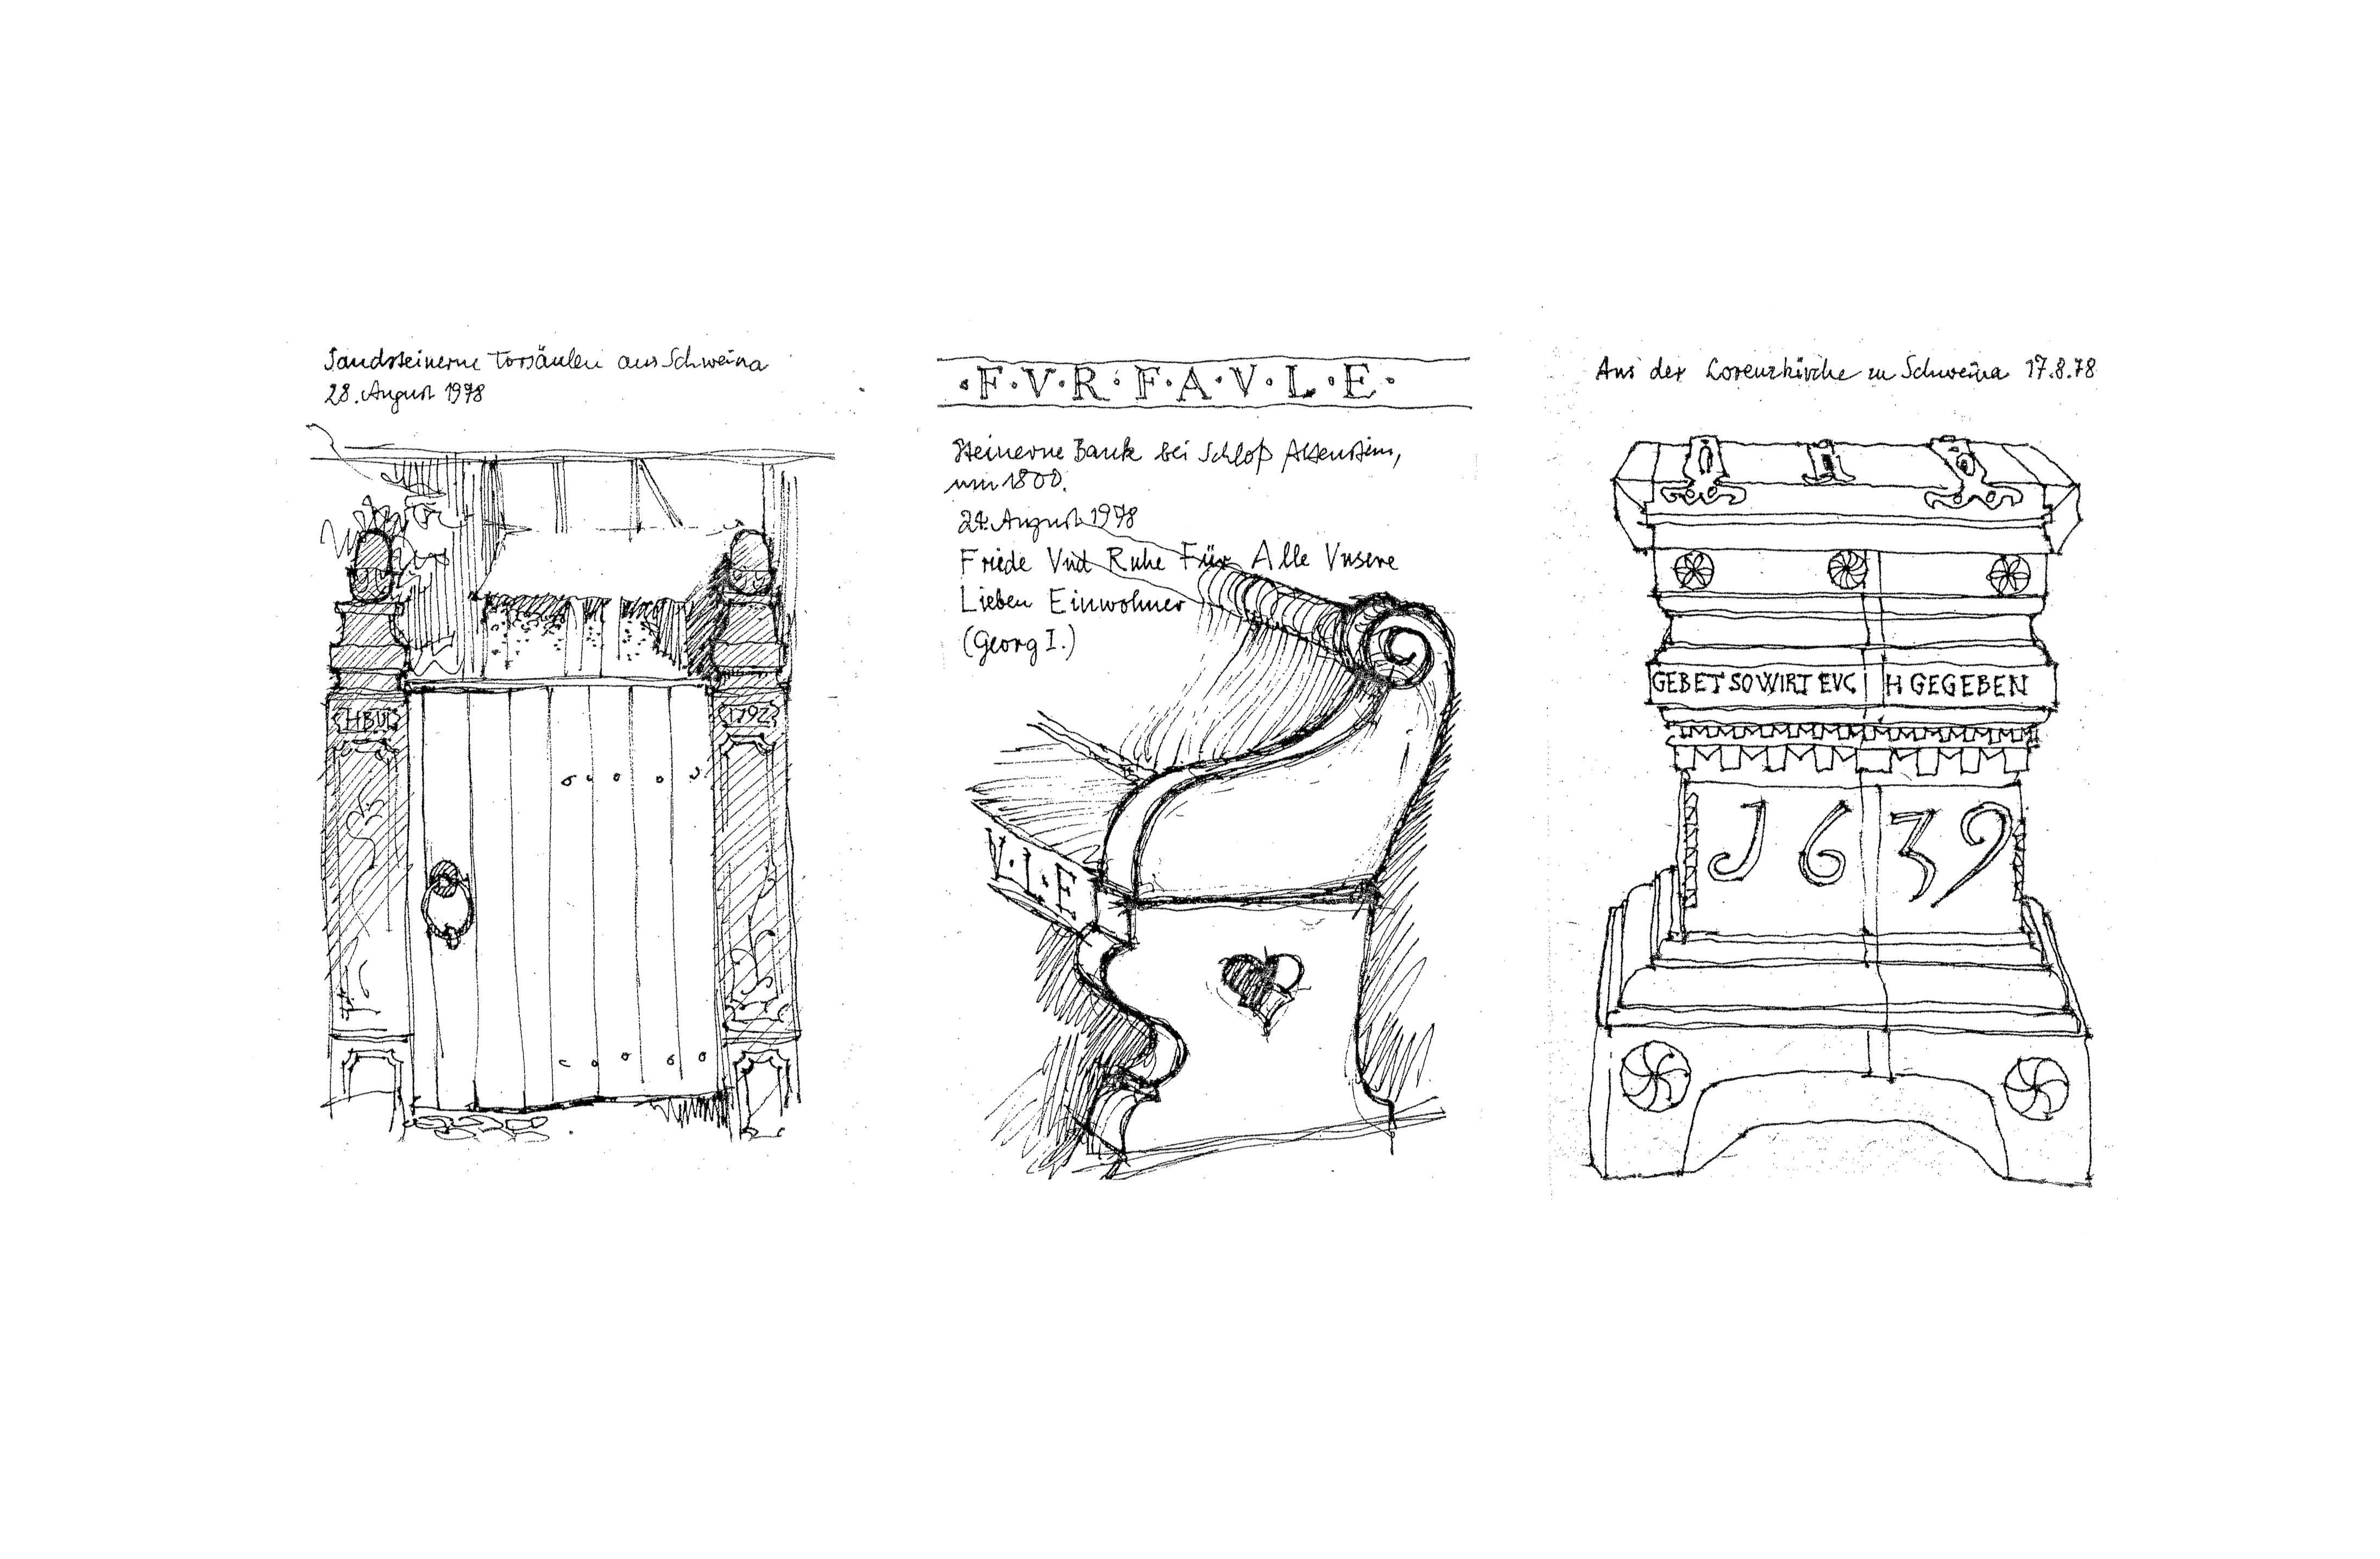 Sandsteinerne Torsäulen aus Schweina
28. August 1978
1792
·F·V·R·F·A·V·L·E·
Steinerne Bank bei Schloß Altenstein,
um 1800.
24. August 1978
Friede Vnd Ruhe Für Alle Vnsere
Lieben Einwohner
(Georg I.)
V·L·E
Aus der Lorenzkirche zu Schweina 17.8.78
GEBET SO WIRT EVC H GEGEBEN
1639